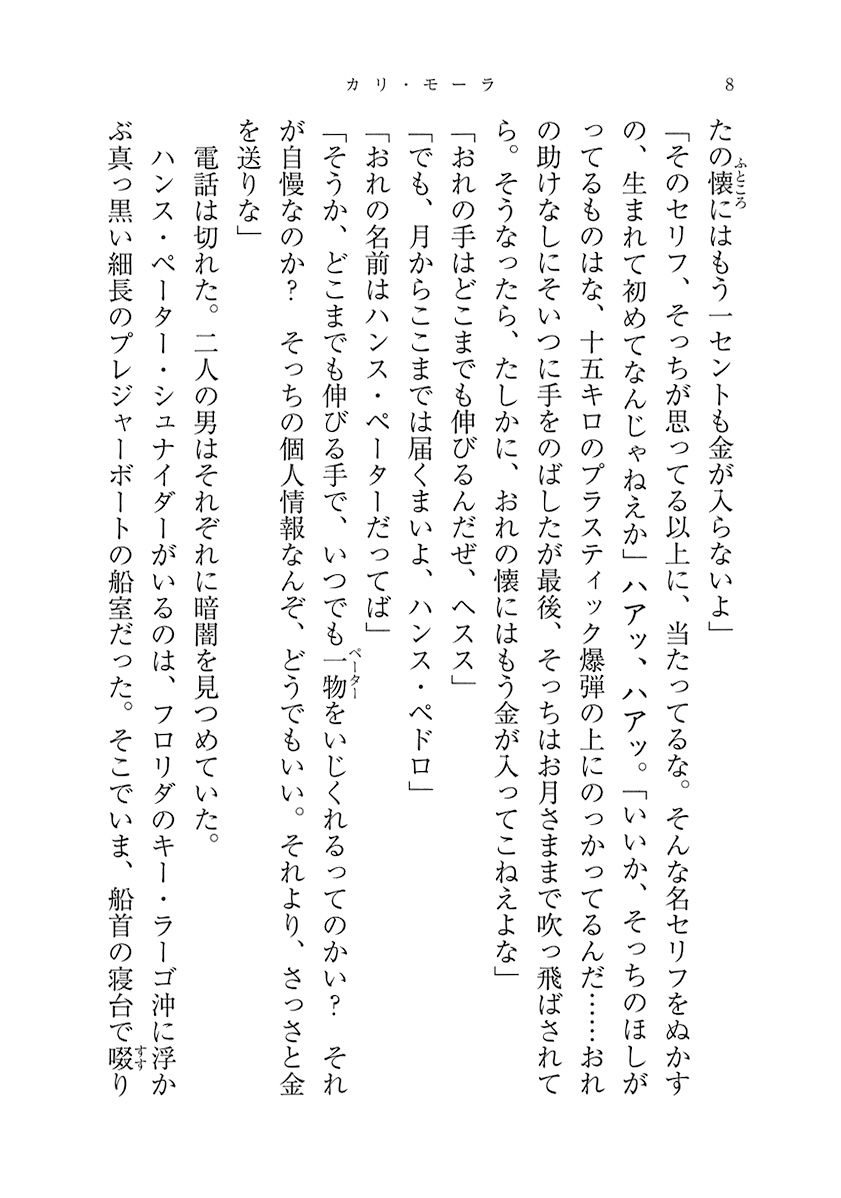 カリ・モーラ
8
たの懐にはもう一セントも金が入らないよ」
ふところ
「そのセリフ、そっちが思ってる以上に、当たってるな。そんな名セリフをぬかす
の、生まれて初めてなんじゃねえか」ハアッ、ハアッ。「いいか、そっちのほしが
ってるものはな、十五キロのプラスティック爆弾の上にのっかってるんだ……おれ
の助けなしにそいつに手をのばしたが最後、そっちはお月さままで吹っ飛ばされて
ら。そうなったら、たしかに、おれの懐にはもう金が入ってこねえよな」
「おれの手はどこまでも伸びるんだぜ、ヘスス」
「でも、月からここまでは届くまいよ、ハンス・ペドロ」
「おれの名前はハンス・ペーターだってば」
「そうか、どこまでも伸びる手で、いつでも一物をいじくれるってのかい？　それ
ペーター
が自慢なのか？　そっちの個人情報なんぞ、どうでもいい。それより、さっさと金
を送りな」
電話は切れた。二人の男はそれぞれに暗闇を見つめていた。
ハンス・ペーター・シュナイダーがいるのは、フロリダのキー・ラーゴ沖に浮か
ぶ真っ黒い細長のプレジャーボートの船室だった。そこでいま、船首の寝台で啜り
すす